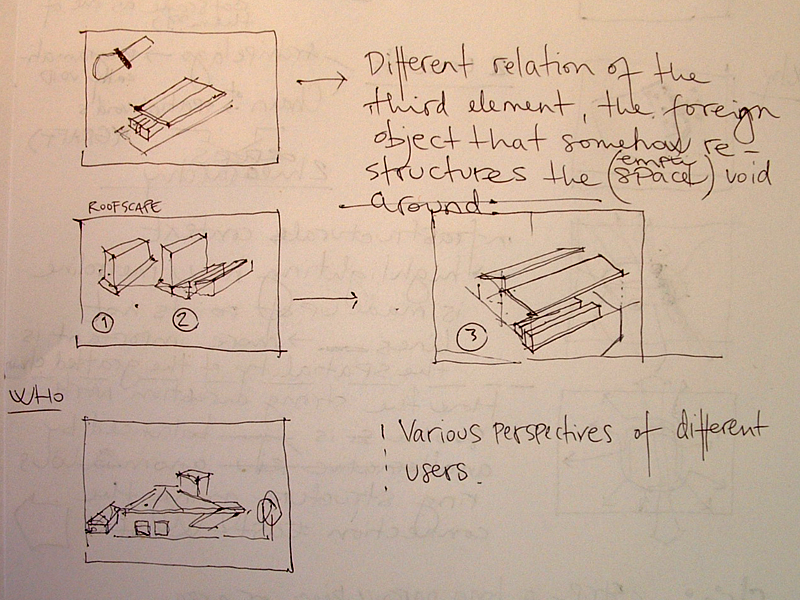 Different relation of the
third element, the foreign
object that somehow re-
structures the (empty space) void
around:
ROOFSCAPE
1
2
3
WHO
Various perspectives of different
users.